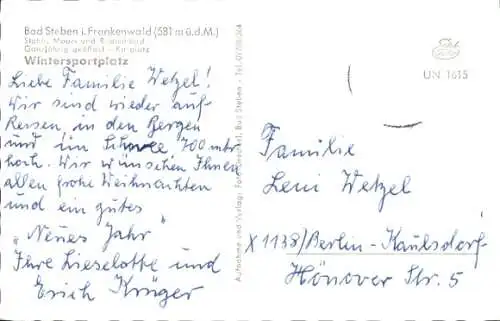 Bad Steben i. Frankenwald (581 m ü.d.M.)
Stahl-, Moor- und Radiumbad
Ganzjährig geöffnet - Kurplatz
Wintersportplatz
Liebe Familie Wetzel!
Wir sind wieder auf
Reisen, in den Bergen
und im Schnee 700 mtr
hoch. Wir wünschen Ihnen
allen frohe Weihnachten
und ein gutes
"Neues Jahr"
Ihre Lieselotte und
Erich Krüger
Aufnahme und Verlag: Foto Bad Steben - Tel. 09288/364
UN 1615
Familie
Leni Wetzel
X 1138/Berlin-Kaulsdorf
Hönower Str. 5